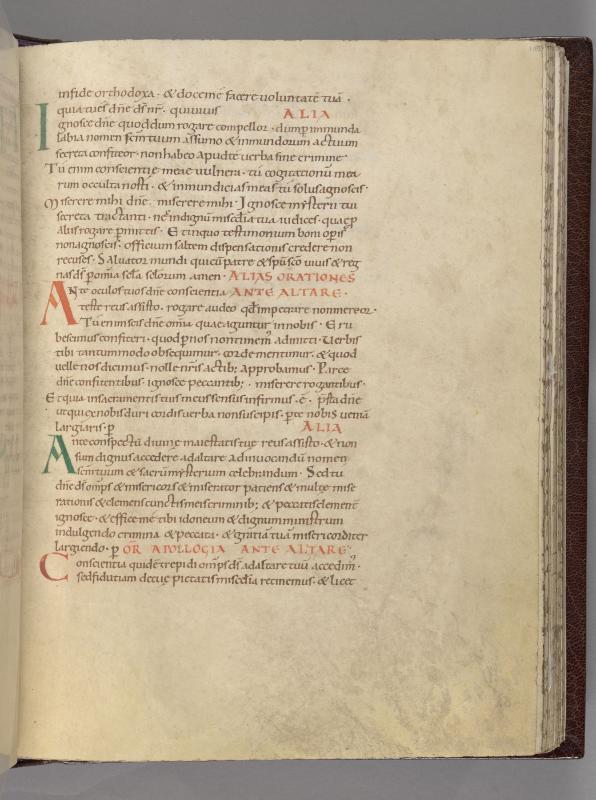 infide orthodoxa · & doceme facere uoluntatē tuā ·
quia tu es dn̄e d̄s nr̄ · qui uiuis ALIA
Ignosce dn̄e quod dum rogare compellor · dum p̄ inmunda
labia nomen sc̄m tuum assumo & inmundorum actuum
secreta confiteor · non habeo apud te uerba sine crimine ·
Tu enim conscientie meae uulnera · tu cogitationum mea
rum occulta nosti · & inmundicias meas tu solus agnoscis ·
Miserere mihi dn̄e · miserere mihi · Ignosce mysterii tui
secreta tractanti · nec indignū misc̄dia tua iudices · quaē p̄
aliis rogare p̄mittis · Et in quo testimonium boni op̄is
non agnoscis · officium saltem dispensationis credere non
recuses · Saluator mundi qui cū patre & sp̄u sc̄o uiuis & reg
nas d̄s p̄ om̄ia sc̄la sc̄lorum amen · ALIAS ORATIONES
Ante oculos tuos dn̄e conscientia ANTE ALTARE ·
teste reus assisto · rogare audeo qd̄ impetrare non mereor ·
Tu enim scis dn̄e om̄ia quae aguntur in nobis · Eru
bescimus confiteri · quod p̄ nos non timem̄ admitti · Uerbis
tibi tantummodo obsequimur · corde mentimur · & quod
uelle nos dicimus · nolle nr̄is actib; approbamus · Parce
dn̄e confitentibus · ignosce peccantib; · miserere rogantibus ·
Et quia in sacramentis tuis meus sensus infirmus · ē · p̄sta dn̄e
ut qui ex nobis duri cordis uerba non suscipis · p̄ te nobis ueniā
largiaris · p̄ ALIA
Ante conspectū diuinę maiestatis tuę reus assisto · & non
sum dignus accedere ad altare ad inuocandū nomen
sc̄m tuum & sacrū mysterium celebrandum · Sed tu
dn̄e d̄s om̄ps & misericors & miserator patiens & multę mise
rationis & clemens cunctis meis criminib; & peccatis clement̄
ignosce · & effice me tibi idoneum & dignum ministrum
indulgendo crimina & peccata · & gratiā tuā misericorditer
largiendo · p̄ OR̄ APOLLOGIA ANTE ALTARE
Conscientia quidē trepidi om̄ps d̄s ad altare tuū accedim̄ ·
sed fidutiam de tuę pietatis misc̄dia retinemus · & licet